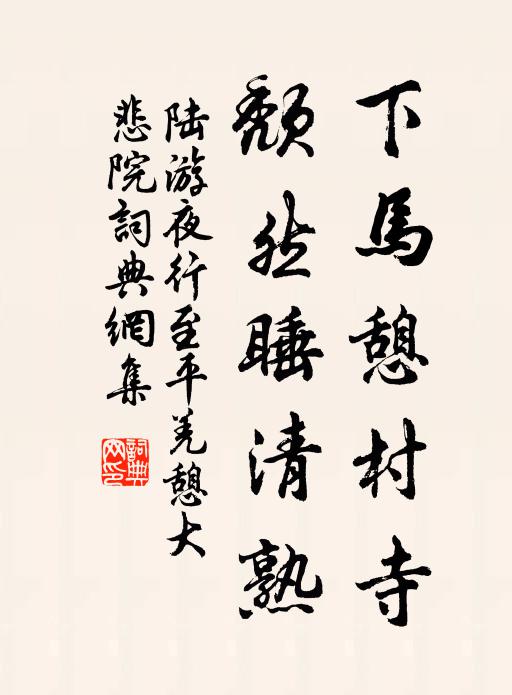 下馬憩村寺
頹然睡清熟
陆游夜行至平羌憩大
悲院詞典網集
詞典
网印